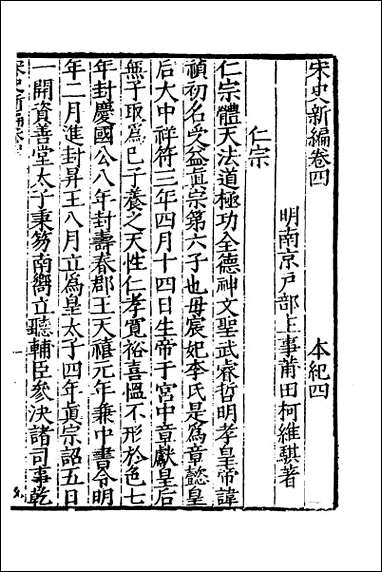 宋史新編卷四　　　　　　本紀四
明南京戶部主事莆田柯維騏著
仁宗
仁宗體天法道極功全德神文聖武睿哲明孝皇帝諱
禎初名受益眞宗第六子也毋宸妃李氏是爲章懿皇
后大中祥符三年四月十四日生帝于宮中章獻皇后
無子取爲已子養之天性仁孝寛裕喜慍不形於色七
年封慶國公八年封壽春郡王天禧元年兼中書令明
年二月進封昇王八月立爲皇太子四年眞宗詔五日
一開資善堂太子秉笏南嚮立聽輔臣參決諸司事乾
宋史新編卷四
一